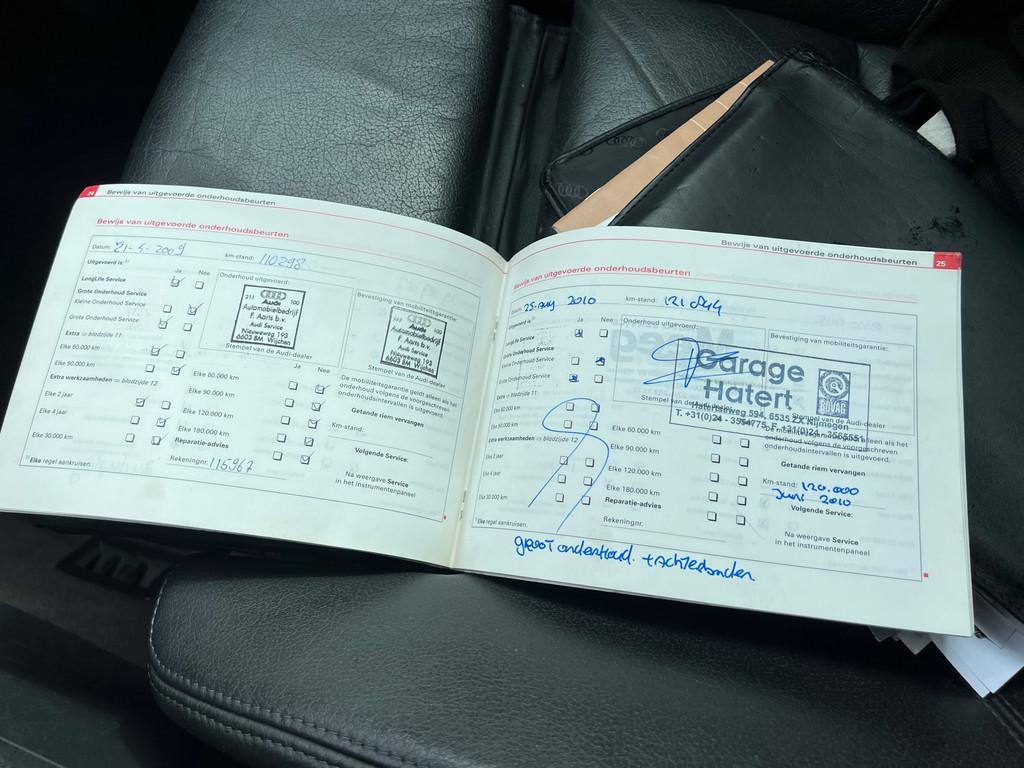 24 Bewijs van uitgevoerde onderhoudsbeurten
Bewijs van uitgevoerde onderhoudsbeurten
Datum: 21-5-2009 km-stand: 110298
Uitgevoerd is:¹⁾
Ja Nee
LongLife Service
Grote Onderhoud Service
Kleine Onderhoud Service
Grote Onderhoud Service
Extra ⇨ bladzijde 11
Elke 60.000 km
Elke 90.000 km
Extra werkzaamheden ⇨ bladzijde 12
Elke 2 jaar
Elke 4 jaar
Elke 30.000 km
¹⁾ Elke regel aankruisen.
Onderhoud uitgevoerd:
211 100
Audi
Automobielbedrijf
F. Aarts b.v.
Audi Service
Nieuweweg 193
6603 BM Wijchen
Stempel van de Audi-dealer
Bevestiging van mobiliteitsgarantie:
Audi
Automobielbedrijf
F. Aarts b.v.
Audi Service
Nieuweweg 193
6603 BM Wijchen
Stempel van de Audi-dealer
Ja Nee
Elke 60.000 km
Elke 90.000 km
Elke 120.000 km
Elke 180.000 km
Reparatie-advies
Rekeningnr. 115967
De mobiliteitsgarantie geldt alleen als het
onderhoud volgens de voorgeschreven
onderhoudsintervallen is uitgevoerd.
Getande riem vervangen
Km-stand:
Volgende Service:
Na weergave Service
in het instrumentenpaneel
Bewijs van uitgevoerde onderhoudsbeurten 25
Bewijs van uitgevoerde onderhoudsbeurten
25 Aug 2010 km-stand: 121 044
Uitgevoerd is:¹⁾
Ja Nee
LongLife Service
Grote Onderhoud Service
Kleine Onderhoud Service
Grote Onderhoud Service
Extra ⇨ bladzijde 11
Elke 60.000 km
Elke 90.000 km
Extra werkzaamheden ⇨ bladzijde 12
Elke 2 jaar
Elke 4 jaar
Elke 30.000 km
¹⁾ Elke regel aankruisen.
Onderhoud uitgevoerd:
Bevestiging van mobiliteitsgarantie:
Garage
Hatert
BOVAG
Hatertseweg 594, 6535 ZX Nijmegen
T. +31(0)24 - 3554775 F. +31(0)24 - 3565551
Stempel van de Audi-dealer
Elke 60.000 km
Elke 90.000 km
Elke 120.000 km
Elke 180.000 km
Reparatie-advies
Rekeningnr.
alleen als het
onderhoud volgens de voorgeschreven
onderhoudsintervallen is uitgevoerd.
Getande riem vervangen
Km-stand: 120.000
Juni 2010
Volgende Service:
Na weergave Service
in het instrumentenpaneel
groot onderhoud. + Achterbanden.